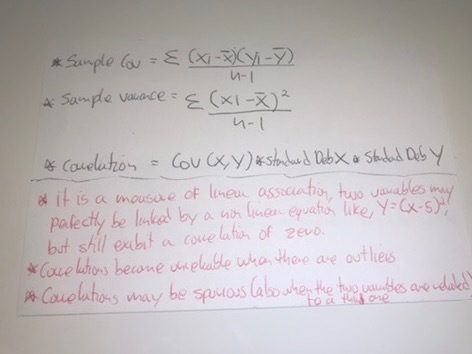 * Sample Cov = Σ (xi-x̄)(yi-ȳ)
n-1
* Sample variance = Σ (xi-x̄)²
n-1
* Correlation = Cov(X,Y) * Standard Deb X * Standard Deb Y
* it is a measure of linear association, two variables may
perfectly be linked by a non linear equation like, Y=(x-5)²,
but still exibit a correlation of zero.
* Correlations become unreliable when there are outliers
* Correlations may be spurious (also when the two variables are related
to a third one